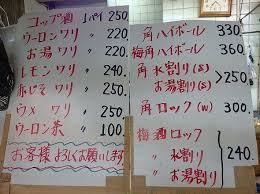 コップ酒 1パイ 250
ウーロンワリ 〃 220
お湯ワリ 〃 220
レモンワリ 〃 240.
赤ぶどうワリ 〃 250.
ウメワリ 〃 250
ウーロン茶 〃 100.
お客様よろしくお願いします
角ハイボール 330
梅角ハイボール 360
角水割り(S)
〃お湯割り(S) >250
角ロック(W) 300.
梅酒ロック
〃 水割り 240.
〃 お湯割り